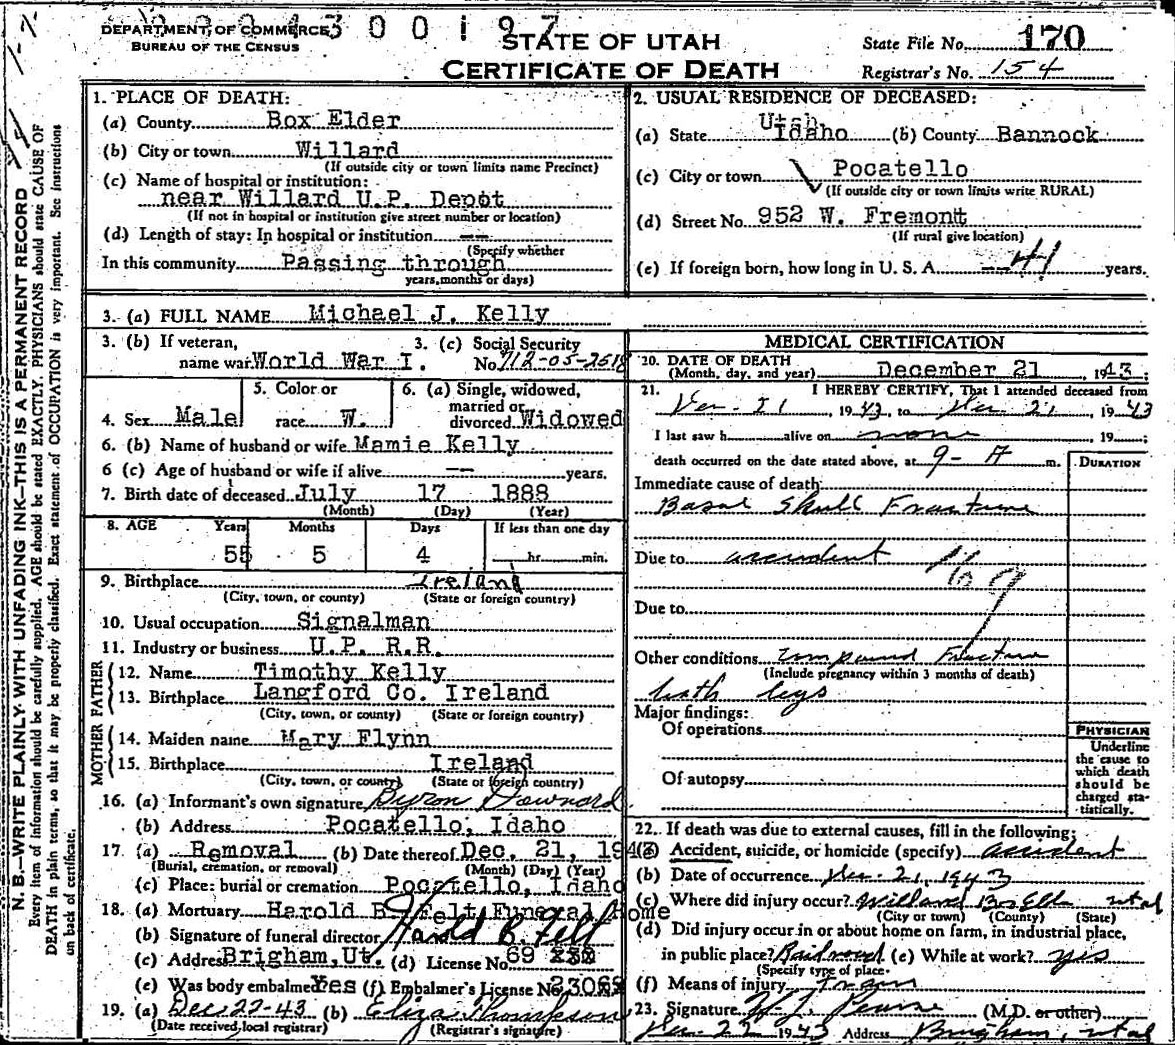 DEPARTMENT OF COMMERCE
BUREAU OF THE CENSUS
4300197
STATE OF UTAH
CERTIFICATE OF DEATH
State File No. 170
Registrar's No. 154
N. B.—WRITE PLAINLY WITH UNFADING INK—THIS IS A PERMANENT RECORD
Every item of information should be carefully supplied. AGE should be stated EXACTLY. PHYSICIANS should state CAUSE OF
DEATH in plain terms, so that it may be properly classified. Exact statement of OCCUPATION is very important. See instructions
on back of certificate.
1. PLACE OF DEATH:
(a) County Box Elder
(b) City or town Willard
(If outside city or town limits name Precinct)
(c) Name of hospital or institution:
near Willard U.P. Depot
(If not in hospital or institution give street number or location)
(d) Length of stay: In hospital or institution --
(Specify whether
In this community Passing through
years, months or days)
2. USUAL RESIDENCE OF DECEASED:
(a) State Utah Idaho (b) County Bannock
(c) City or town Pocatello
(If outside city or town limits write RURAL)
(d) Street No. 952 W. Fremont
(If rural give location)
(e) If foreign born, how long in U. S. A. --41 years.
3. (a) FULL NAME Michael J. Kelly
3. (b) If veteran, 3. (c) Social Security
name war World War I. No. 712-05-2518
4. Sex Male
5. Color or
race W.
6. (a) Single, widowed,
married or
divorced Widowed
6. (b) Name of husband or wife Mamie Kelly
6 (c) Age of husband or wife if alive -- years.
7. Birth date of deceased July 17 1888
(Month) (Day) (Year)
8. AGE Years Months Days If less than one day
55 5 4 hr. min.
9. Birthplace Ireland
(City, town, or county) (State or foreign country)
10. Usual occupation Signalman
11. Industry or business U.P. R.R.
FATHER
12. Name Timothy Kelly
13. Birthplace Langford Co. Ireland
(City, town, or county) (State or foreign country)
MOTHER
14. Maiden name Mary Flynn
15. Birthplace Ireland
(City, town, or county) (State or foreign country)
16. (a) Informant's own signature Byron Downard
(b) Address Pocatello, Idaho
17. (a) Removal (b) Date thereof Dec. 21, 1943
(Burial, cremation, or removal) (Month) (Day) (Year)
(c) Place: burial or cremation Pocatello, Idaho
18. (a) Mortuary Harold B. Felt Funeral Home
(b) Signature of funeral director Harold B. Felt
(c) Address Brigham, Ut. (d) License No. 69
(e) Was body embalmed Yes (f) Embalmer's License No.
19. (a) Dec-22-43 (b) Eliza Thompson
(Date received, local registrar) (Registrar's signature)
MEDICAL CERTIFICATION
20. DATE OF DEATH
(Month, day, and year) December 21, 1943.
21. I HEREBY CERTIFY, That I attended deceased from
Dec. 21, 1943, to Dec 21, 1943
I last saw h alive on none, 19 ;
death occurred on the date stated above, at 9- A m.
DURATION
Immediate cause of death:
Basal Skull Fracture
Due to accident
169
Due to
Other conditions compound Fracture
(Include pregnancy within 3 months of death)
both legs
Major findings:
Of operations
Of autopsy
PHYSICIAN
Underline
the cause to
which death
should be
charged sta-
tistically.
22. If death was due to external causes, fill in the following:
(a) Accident, suicide, or homicide (specify) accident
(b) Date of occurrence Dec-21, 1943
(c) Where did injury occur? Willard Box Elder Utah
(City or town) (County) (State)
(d) Did injury occur in or about home on farm, in industrial place,
in public place? Railroad (e) While at work? yes
(Specify type of place.
(f) Means of injury Train
23. Signature W. J. (M.D. or other)
Dec-22 1943 Address Brigham, Utah